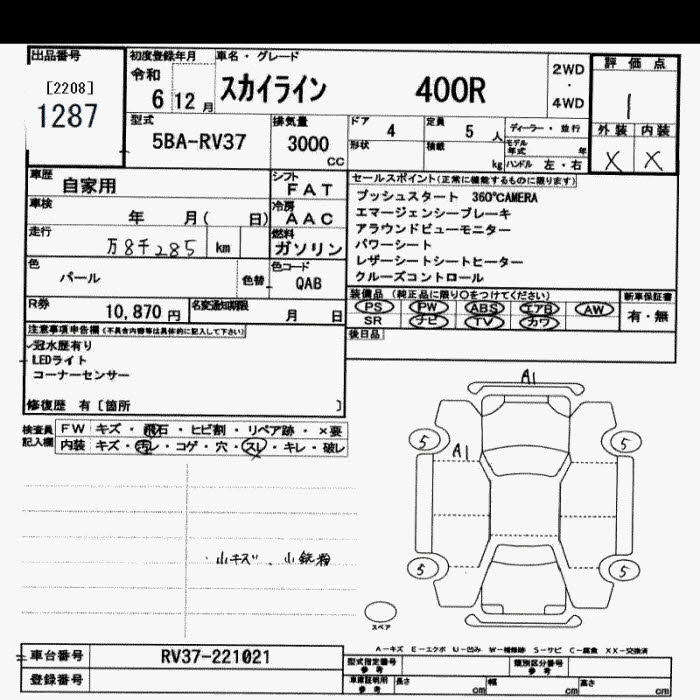 出品番号
[2208]
1287
初度登録年月
令和
6 12 月
車名・グレード
スカイライン 400R
2WD
・
4WD
評価点
1
外装 内装
X X
型式
5BA-RV37
排気量
3000
CC
ドア 4
定員 5 人
形状
積載 kg
ディーラー・並行
モデル年式 年
ハンドル 左・右
車歴
自家用
シフト
FAT
車検
年 月( 日)
冷房
AAC
走行
万8千285 km
燃料
ガソリン
色
パール
色替
色コード
QAB
R券
10,870 円
名変通知期限
月 日
セールスポイント(正常に機能するものに限ります)
プッシュスタート 360°CAMERA
エマージェンシーブレーキ
アラウンドビューモニター
パワーシート
レザーシートシートヒーター
クルーズコントロール
装備品 (純正品に限り〇をつけてください)
新車保証書
PS PW ABS エアB AW
SR ナビ TV カワ
有・無
後日品
注意事項申告欄(不具合内容等は具体的に記入して下さい)
冠水歴有り
LEDライト
コーナーセンサー
修復歴 有〔箇所 〕
検査員
記入欄
FW キズ・飛石・ヒビ割・リペア跡・×要
内装 キズ・汚レ・コゲ・穴・スレ・キレ・破レ
・小キズ、小鉄粉
A1
5 5
A1
5 5
スペア
A-キズ E-エクボ U-凹み W-補修跡 S-サビ C-腐食 XX-交換済
車台番号
RV37-221021
登録番号
型式指定番号
参考
類別区分番号
参考
車庫証明用
参考
長さ cm 幅 cm 高さ cm